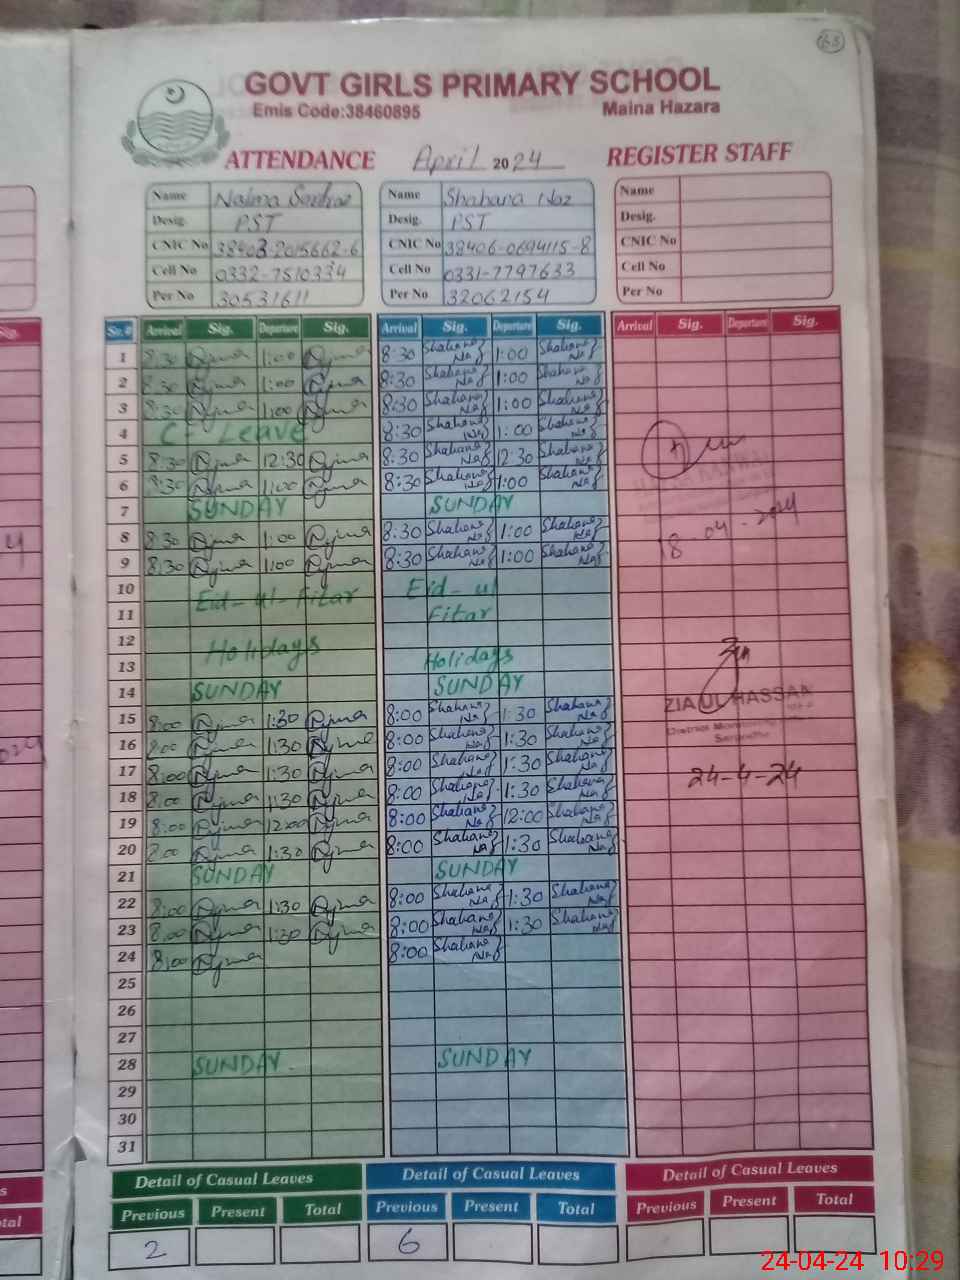 63
GOVT GIRLS PRIMARY SCHOOL
Emis Code:38460895 Maina Hazara
ATTENDANCE April 2024 REGISTER STAFF
Name Naima Name Shahana Naz Name
Desig. PST Desig. PST Desig.
CNIC No 38403-2015662-6 CNIC No 38406-0694115-8 CNIC No
Cell No 0332-7510334 Cell No 0331-7797633 Cell No
Per No 30531611 Per No 32062154 Per No
Sr. # Arrival Sig. Departure Sig. Arrival Sig. Departure Sig. Arrival Sig. Departure Sig.
1 8:30 1:00 8:30 Shahana Naz 1:00 Shahana Naz
2 8:30 1:00 8:30 Shahana Naz 1:00 Shahana Naz
3 8:30 1:00 8:30 Shahana Naz 1:00 Shahana Naz
4 C- Leave 8:30 Shahana Naz 1:00 Shahana Naz
5 8:30 12:30 8:30 Shahana Naz 12:30 Shahana Naz
6 8:30 1:00 8:30 Shahana Naz 1:00 Shahana Naz
7 SUNDAY SUNDAY
8 8:30 1:00 8:30 Shahana Naz 1:00 Shahana Naz 18-04-2024
9 8:30 1:00 8:30 Shahana Naz 1:00 Shahana Naz
10 Eid-ul-Fitar Eid-ul
11 Fitar
12 Holidays
13 Holidays
14 SUNDAY SUNDAY
ZIA UL HASSAN
15 8:00 1:30 8:00 Shahana Naz 1:30 Shahana Naz
District Monitoring
Sargodha
16 8:00 1:30 8:00 Shahana Naz 1:30 Shahana Naz
17 8:00 1:30 8:00 Shahana Naz 1:30 Shahana Naz 24-4-24
18 8:00 1:30 8:00 Shahana Naz 1:30 Shahana Naz
19 8:00 12:00 8:00 Shahana Naz 12:00 Shahana Naz
20 8:00 1:30 8:00 Shahana Naz 1:30 Shahana Naz
21 SUNDAY SUNDAY
22 8:00 1:30 8:00 Shahana Naz 1:30 Shahana Naz
23 8:00 1:30 8:00 Shahana Naz 1:30 Shahana Naz
24 8:00 8:00 Shahana Naz
25
26
27
28 SUNDAY SUNDAY
29
30
31
Detail of Casual Leaves Detail of Casual Leaves Detail of Casual Leaves
Previous Present Total Previous Present Total Previous Present Total
2 6
24-04-24 10:29